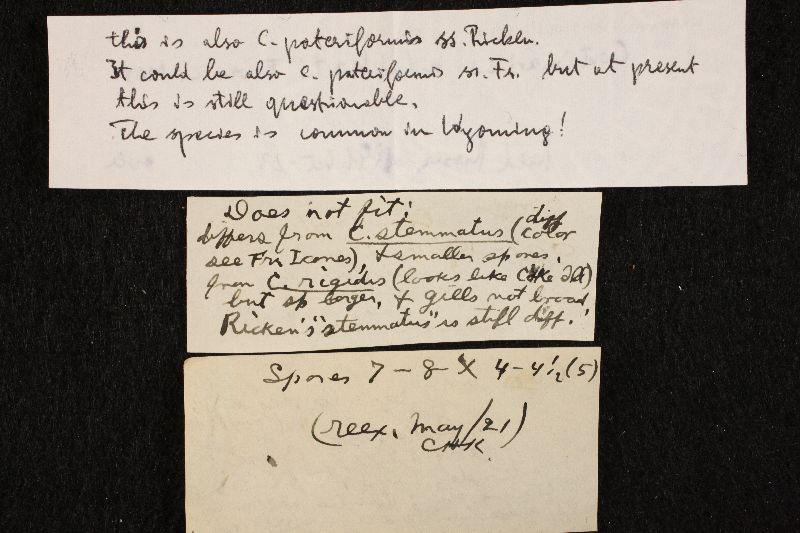 this is also C. pateriformis ss. Ricken.
It could be also C. pateriformis ss. Fr. but at present
this is still questionable.
The species is common in Wyoming!
Does not fit!
differs from C. stemmatus (diff color
see Fr. Icones), & smaller spores.
from C. rigidus (looks like Cke Ill)
but sp larger, & gills not broad
Ricken's "stemmatus" is still diff.!
Spores 7 - 8 X 4 - 4 1/2 (5)
(reex. May/21)
CHK